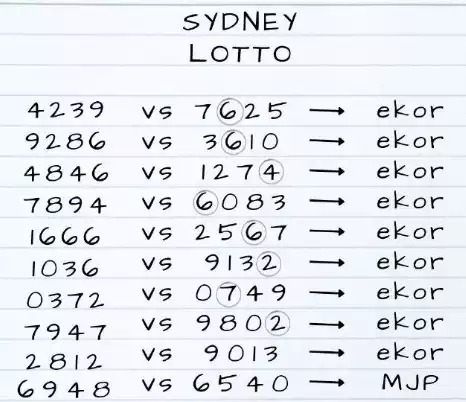 SYDNEY
LOTTO
4239 vs 7625 → ekor
9286 vs 3610 → ekor
4846 vs 1274 → ekor
7894 vs 6083 → ekor
1666 vs 2567 → ekor
1036 vs 9132 → ekor
0372 vs 0749 → ekor
7947 vs 9802 → ekor
2812 vs 9013 → ekor
6948 vs 6540 → MJP